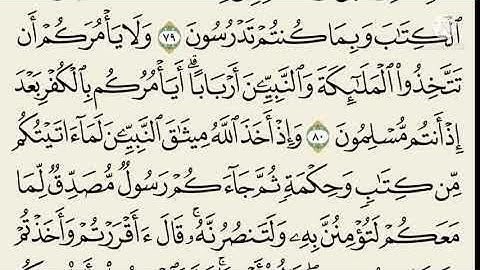 ٱلْكِتَٰبَ وَبِمَا كُنتُمْ تَدْرُسُونَ ٧٩ وَلَا يَأْمُرَكُمْ أَن
تَتَّخِذُوا۟ ٱلْمَلَٰٓئِكَةَ وَٱلنَّبِيِّـۧنَ أَرْبَابًا ۗ أَيَأْمُرُكُم بِٱلْكُفْرِ بَعْدَ
إِذْ أَنتُم مُّسْلِمُونَ ٨٠ وَإِذْ أَخَذَ ٱللَّهُ مِيثَٰقَ ٱلنَّبِيِّـۧنَ لَمَآ ءَاتَيْتُكُم
مِّن كِتَٰبٍ وَحِكْمَةٍ ثُمَّ جَآءَكُمْ رَسُولٌ مُّصَدِّقٌ لِّمَا
مَعَكُمْ لَتُؤْمِنُنَّ بِهِۦ وَلَتَنصُرُنَّهُۥ ۚ قَالَ ءَأَقْرَرْتُمْ وَأَخَذْتُمْ